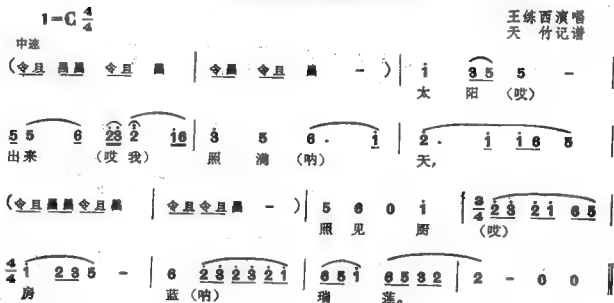 1=C 4/4
王练西演唱
天 竹记谱
中速
(令且 昌昌 令且 昌 | 令昌 令且 昌 - ) | i 3 5 5 -
太 阳 (哎)
5 5 6 2 3 2 i 6 | 3 5 6 · i | 2 · i i 6 5
出来 (哎 我) 照 满 (呐) 天,
(令且 昌昌 令且 昌 | 令且 令且 昌 - ) | 5 6 0 i | 3/4 2 3 2 i 6 5
照 见 厨 (哎)
4/4 i 2 3 5 - | 6 2 3 2 3 2 i | 6 5 i 6 5 3 2 | 2 - 0 0
房 蓝 (呐) 瑞 莲。